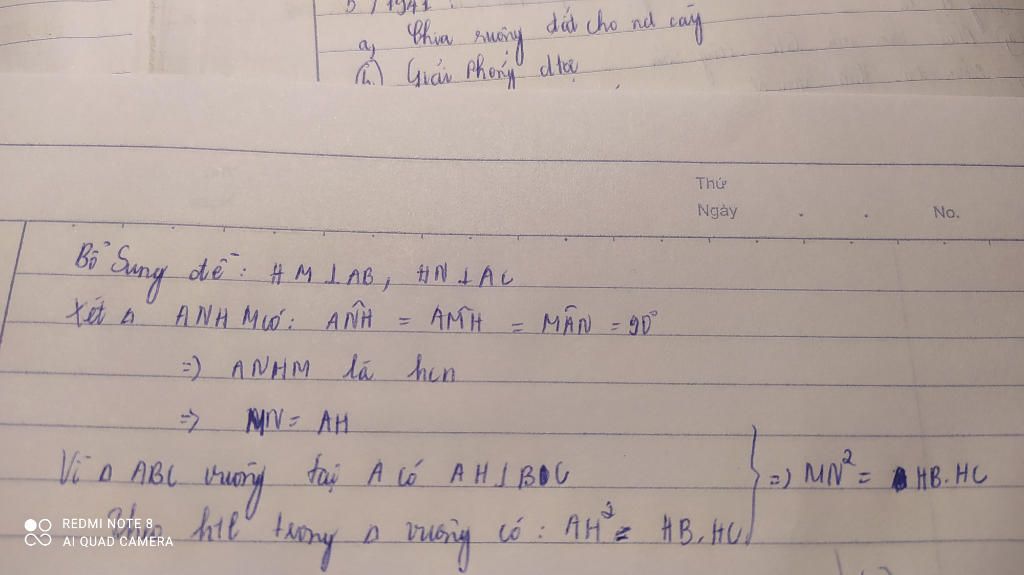 5 / 1941 :
a, Chia ruộng đất cho nd cày
b, Giải phóng dtộc
Thứ
Ngày . . No.
Bổ sung đề : HM ⊥ AB, HN ⊥ AC
Xét △ ANHM có: AN̂H = AM̂H = MÂN = 90°
=) ANHM là hcn
=> MN = AH
Vì △ ABC vuông tại A có AH ⊥ BC
=) MN² = HB.HC
Theo htl trong △ vuông có : AH² = HB.HC
REDMI NOTE 8
AI QUAD CAMERA